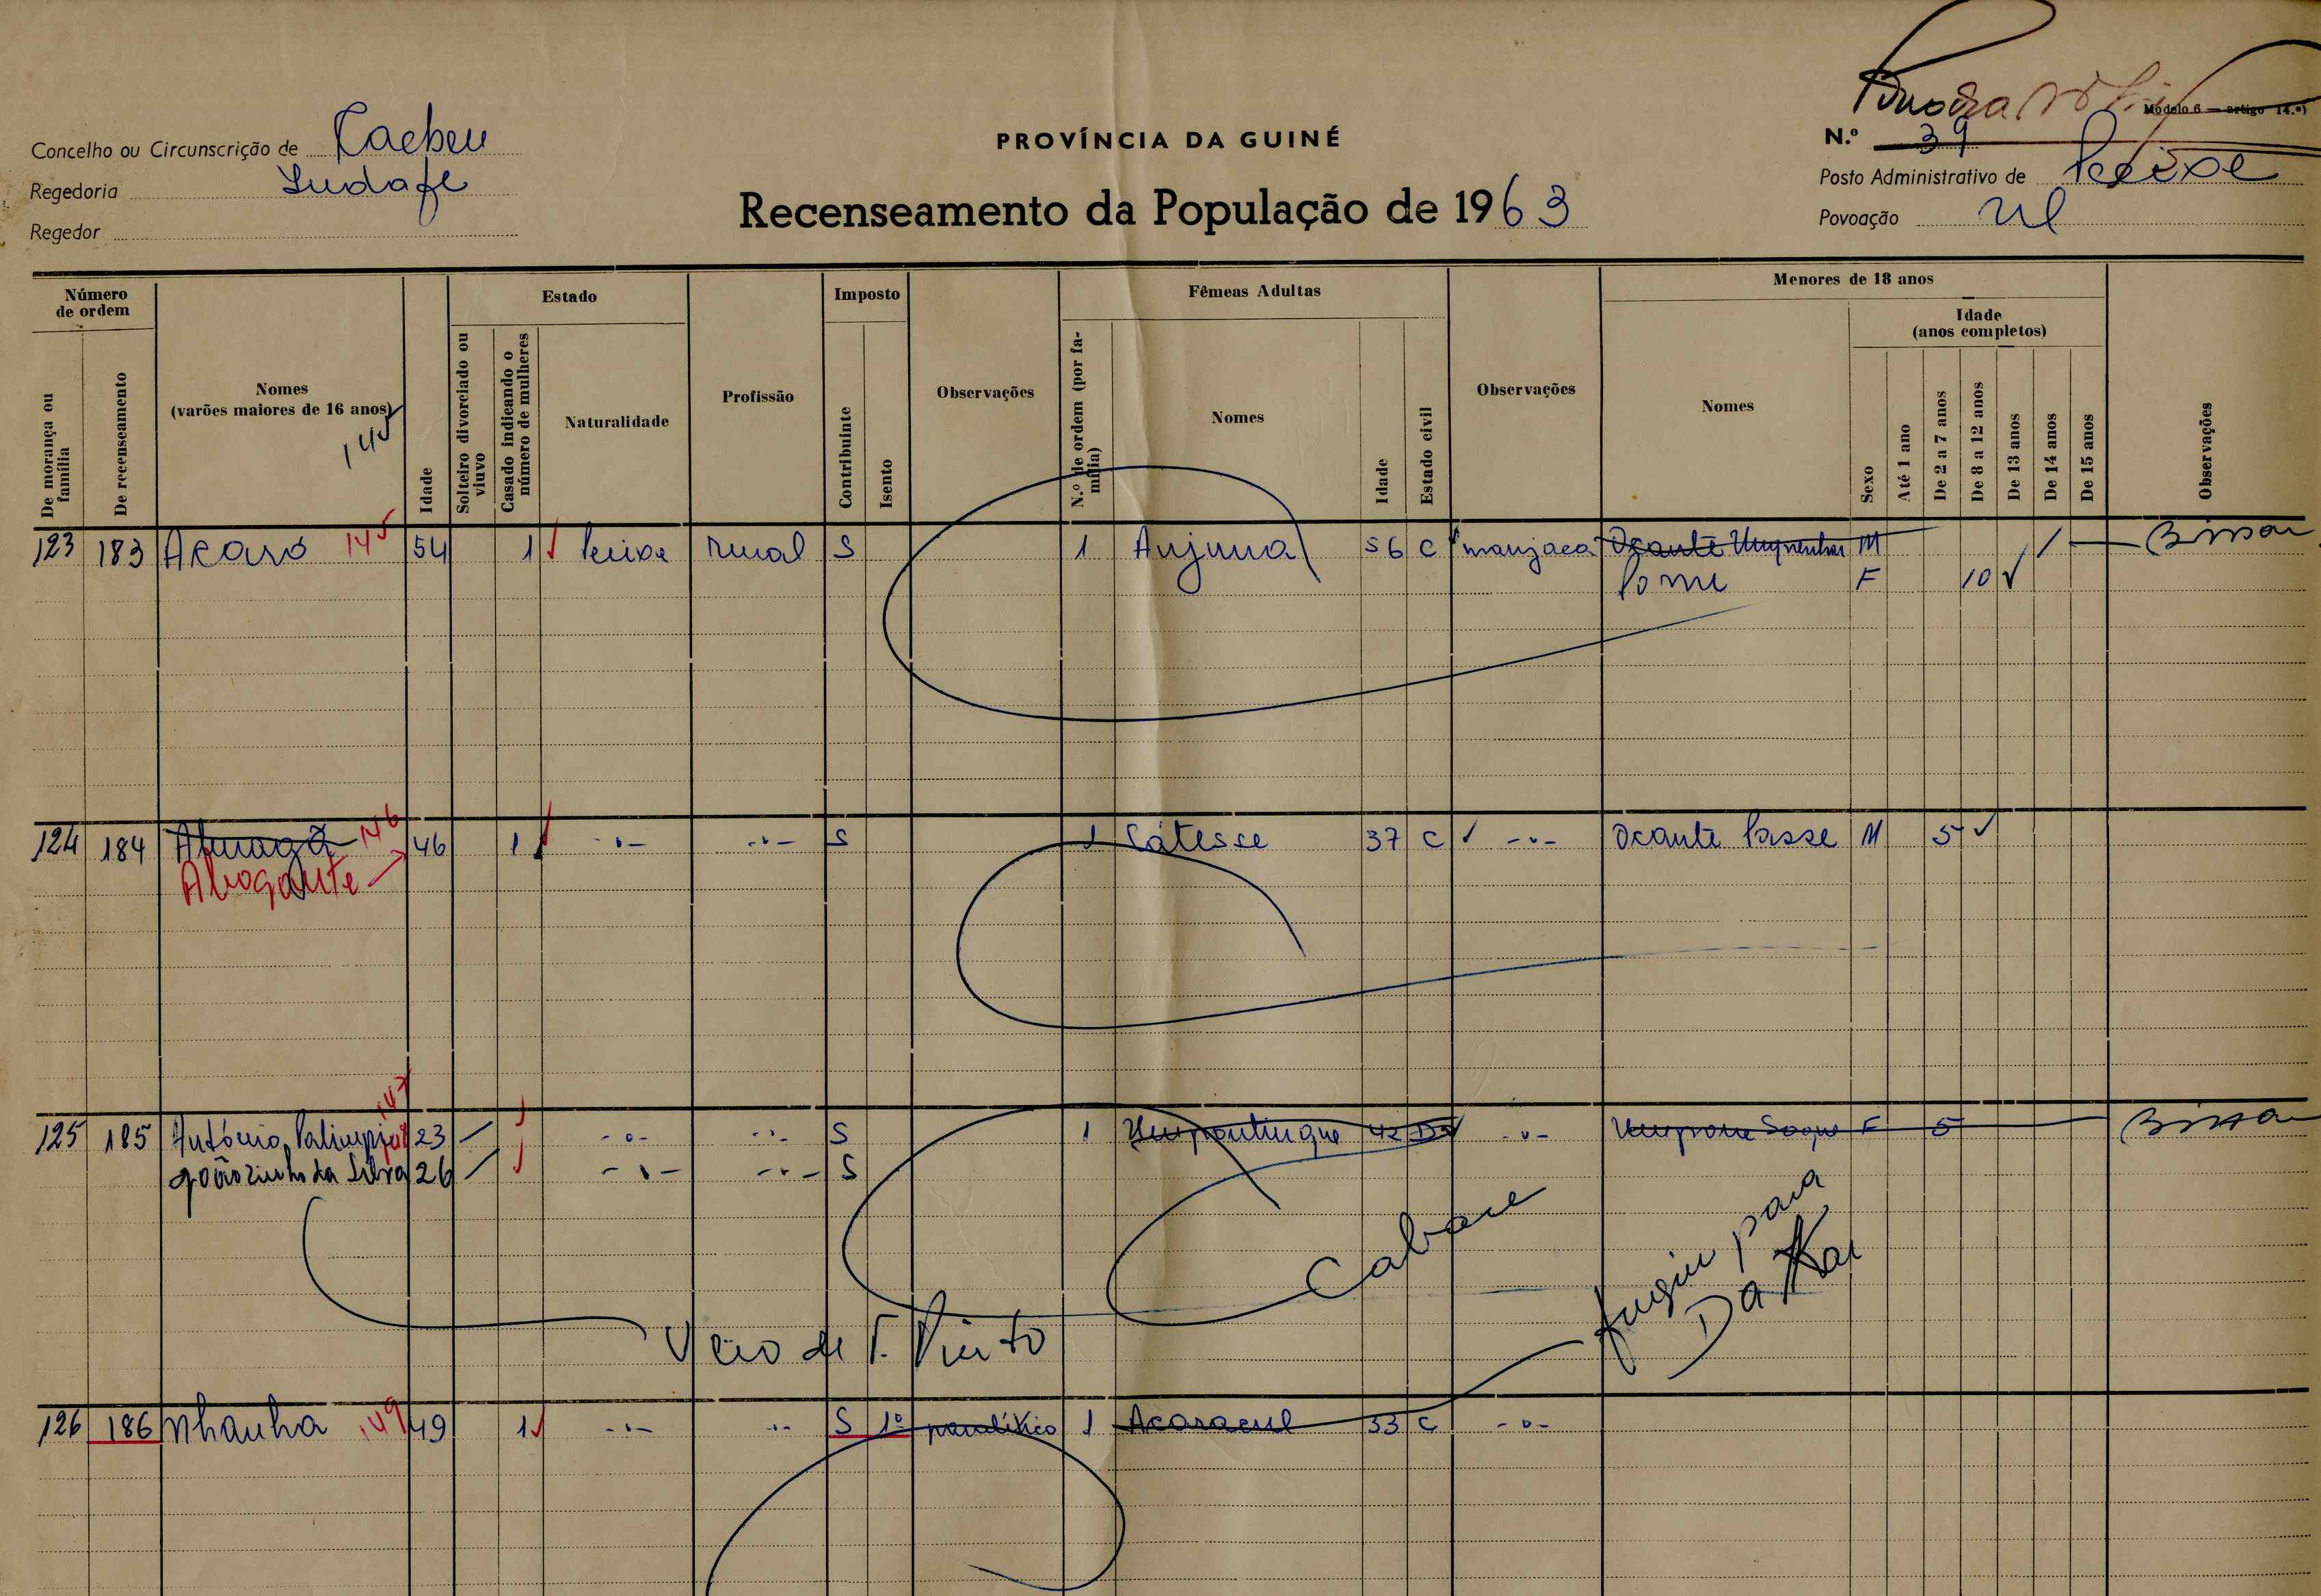 Modelo 6 — artigo 14.º)
Concelho ou Circunscrição de Caebeu
PROVÍNCIA DA GUINÉ
N.º 39
Regedoria
Posto Administrativo de Pecixe
Recenseamento da População de 1963
Regedor
Povoação
Número de ordem
De morança ou família
De recenseamento
Nomes
(varões maiores de 16 anos)
145
Idade
Estado
Solteiro divorciado ou viuvo
Casado indicando o número de mulheres
Naturalidade
Profissão
Imposto
Contribuinte
Isento
Observações
Fêmeas Adultas
N.º de ordem (por família)
Nomes
Idade
Estado civil
Observações
Menores de 18 anos
Nomes
Sexo
Idade
(anos completos)
Até 1 ano
De 2 a 7 anos
De 8 a 12 anos
De 13 anos
De 14 anos
De 15 anos
Observações
123 183 Acaró 145 54 1 Pecixe rural S 1 Anjuna 56 C manjaca Ocante M Bissau
Pome F 10
124 184 146 46 1 -·- -·- S 1 Catesse 37 C -·- Ocante Passe M 5
Abogante
147
125 185 António 23 -·- -·- S 1 42 -·- F 5 Bissau
Joãozinho da Silva 26 -·- -·- S
fugiu para
Dakar
Veio de T. Pinto
126 186 Nhanha 149 49 1 -·- -·- S 1º paralítico 1 Acaracul 33 C -·-